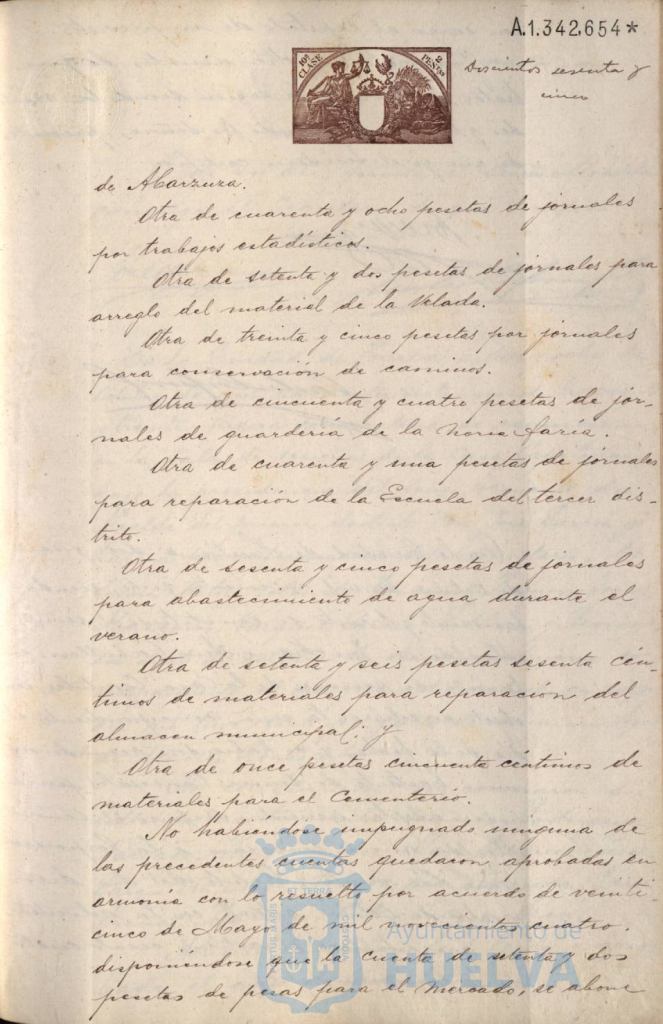 A.1.342.654*
10ª CLASE
2 PEŜTAS
Doscientos sesenta y
cinco
de Abarzuza.
Otra de cuarenta y ocho pesetas de jornales
por trabajos estadísticos.
Otra de setenta y dos pesetas de jornales para
arreglo del material de la Velada.
Otra de treinta y cinco pesetas por jornales
para conservación de caminos.
Otra de cincuenta y cuatro pesetas de jor-
nales de guardería de la Noria
Otra de cuarenta y una pesetas de jornales
para reparación de la Escuela del tercer dis-
trito.
Otra de sesenta y cinco pesetas de jornales
para abastecimiento de agua durante el
verano.
Otra de setenta y seis pesetas sesenta cén-
timos de materiales para reparación del
almacen municipal; y
Otra de once pesetas cincuenta céntimos de
materiales para el Cementerio.
No habiéndose impugnado ninguna de
las precedentes cuentas quedaron aprobadas en
armonía con lo resuelto por acuerdo de veinti-
cinco de Mayo de mil novecientos cuatro.
disponiéndose que la cuenta de setenta y dos
pesetas de pesas para el Mercado, se abone
Ayuntamiento de
HUELVA